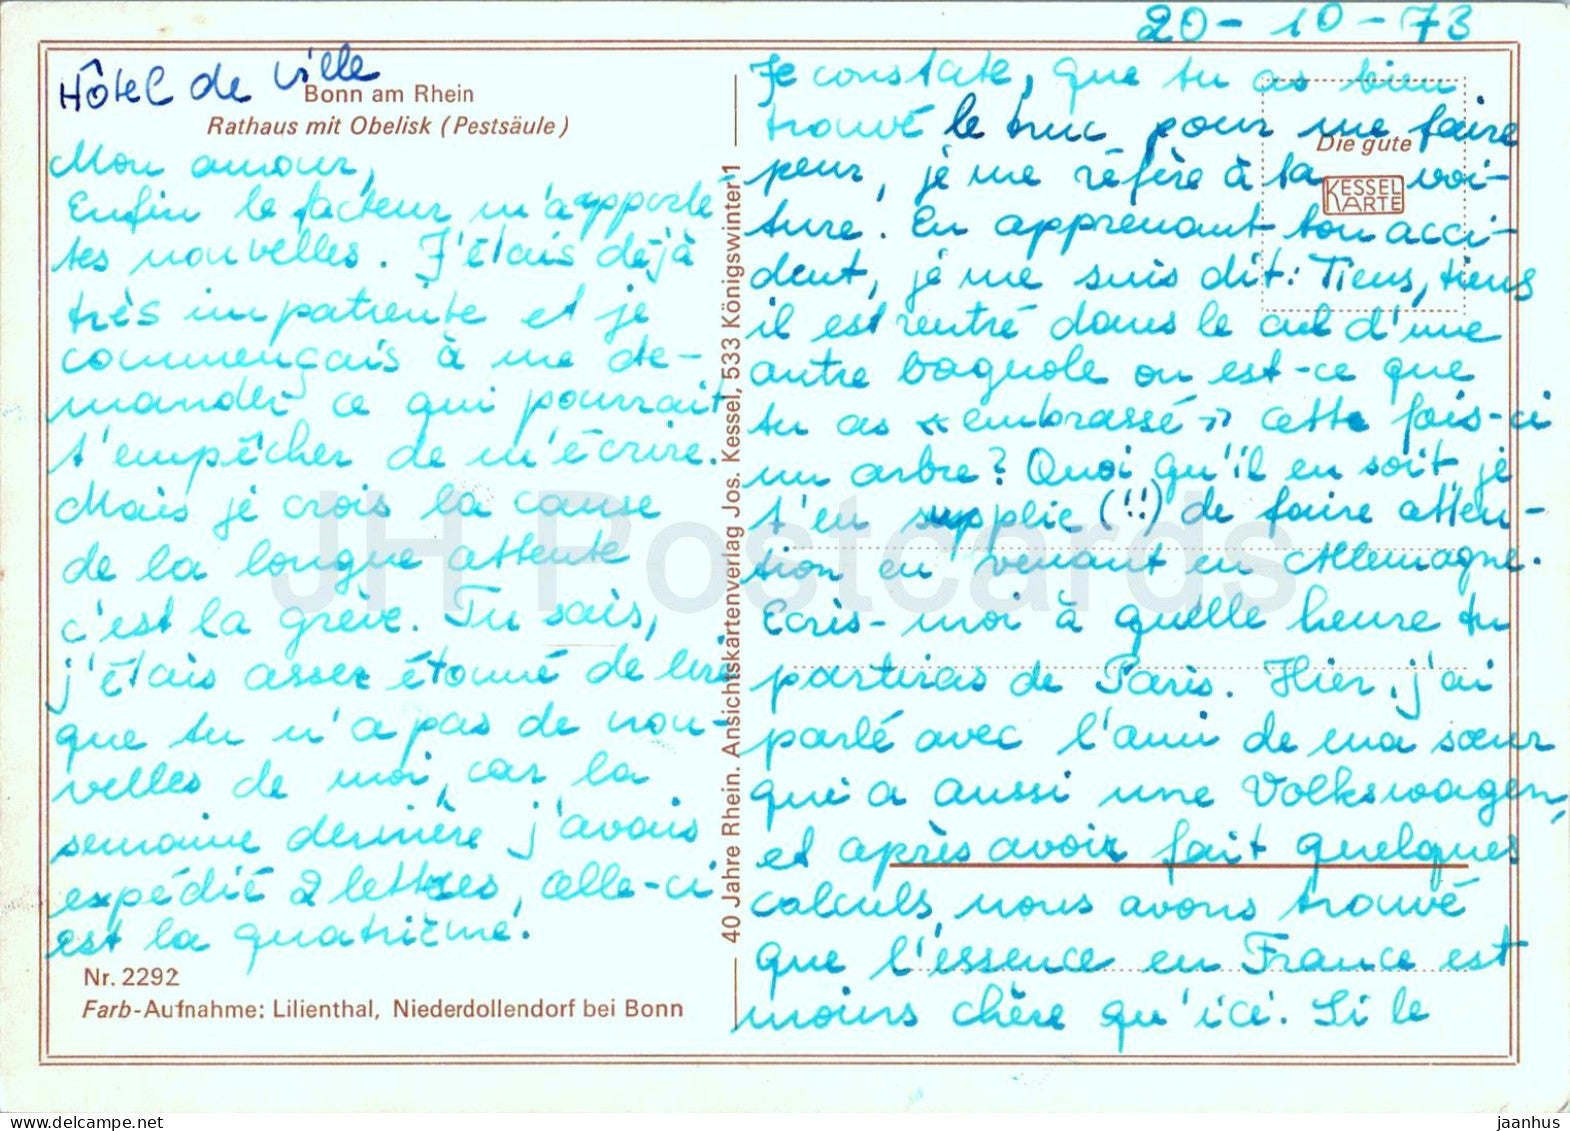 20-10-73
Hôtel de Ville
Bonn am Rhein
Rathaus mit Obelisk (Pestsäule)
Mon amour,
Enfin le facteur m'apporte
tes nouvelles. J'étais déjà
très impatiente et je
commençais à me de-
mander ce qui pourrait
t'empêcher de m'écrire.
Mais je crois la cause
de la longue attente
c'est la grève. Tu sais,
j'étais assez étonné de lire
que tu n'a pas de nou-
velles de moi, car la
semaine dernière j'avais
expédié 2 lettres, celle-ci
est la quatrième!
Nr. 2292
Farb-Aufnahme: Lilienthal, Niederdollendorf bei Bonn
40 Jahre Rhein. Ansichtskartenverlag Jos. Kessel, 533 Königswinter 1
Die gute
KESSEL
KARTE
Je constate, que tu as bien
trouvé le truc pour me faire
peur, je me réfère à ta voi-
ture. En apprenant ton acci-
dent, je me suis dit: Tiens, tiens
il est rentré dans le cul d'une
autre bagnole ou est-ce que
tu as «embrassé» cette fois-ci
un arbre? Quoi qu'il en soit, je
t'en supplie (!!) de faire atten-
tion en venant en Allemagne.
Ecris-moi à quelle heure tu
partiras de Paris. Hier, j'ai
parlé avec l'ami de ma sœur
qui a aussi une Volkswagen,
et après avoir fait quelques
calculs, nous avons trouvé
que l'essence en France est
moins chère qu'ici. Si le
JH Postcards
hippostcard.com
jaanhus